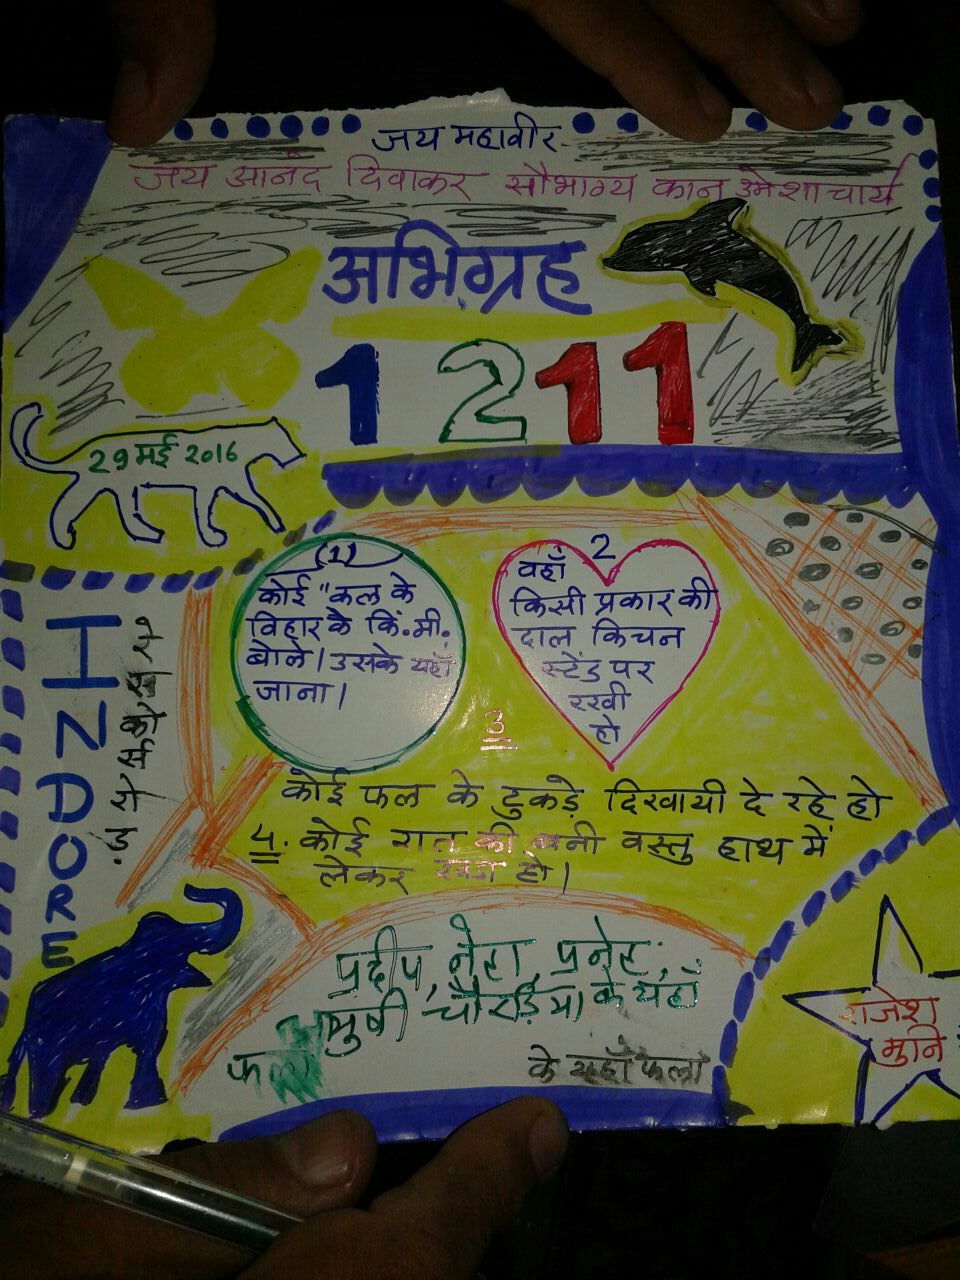 जय महावीर
जय आनंद दिवाकर सौभाग्य कान उमेशाचार्य
अभिग्रह
1211
29 मई 2016
(1)
कोई "कल के
विहार के कि.मी.
बोले। उसके यहाँ
जाना।
2
वहाँ
किसी प्रकार की
दाल किचन
स्टेंड पर
रखी
हो
3
कोई फल के टुकड़े दिखायी दे रहे हो
4. कोई रात की बनी वस्तु हाथ में
लेकर खडा हो।
प्रदीप, नेहा, प्रनेट,
चौरड़िया के यहाँ
के यहाँ फला
INDORE
राजेश
मुनि